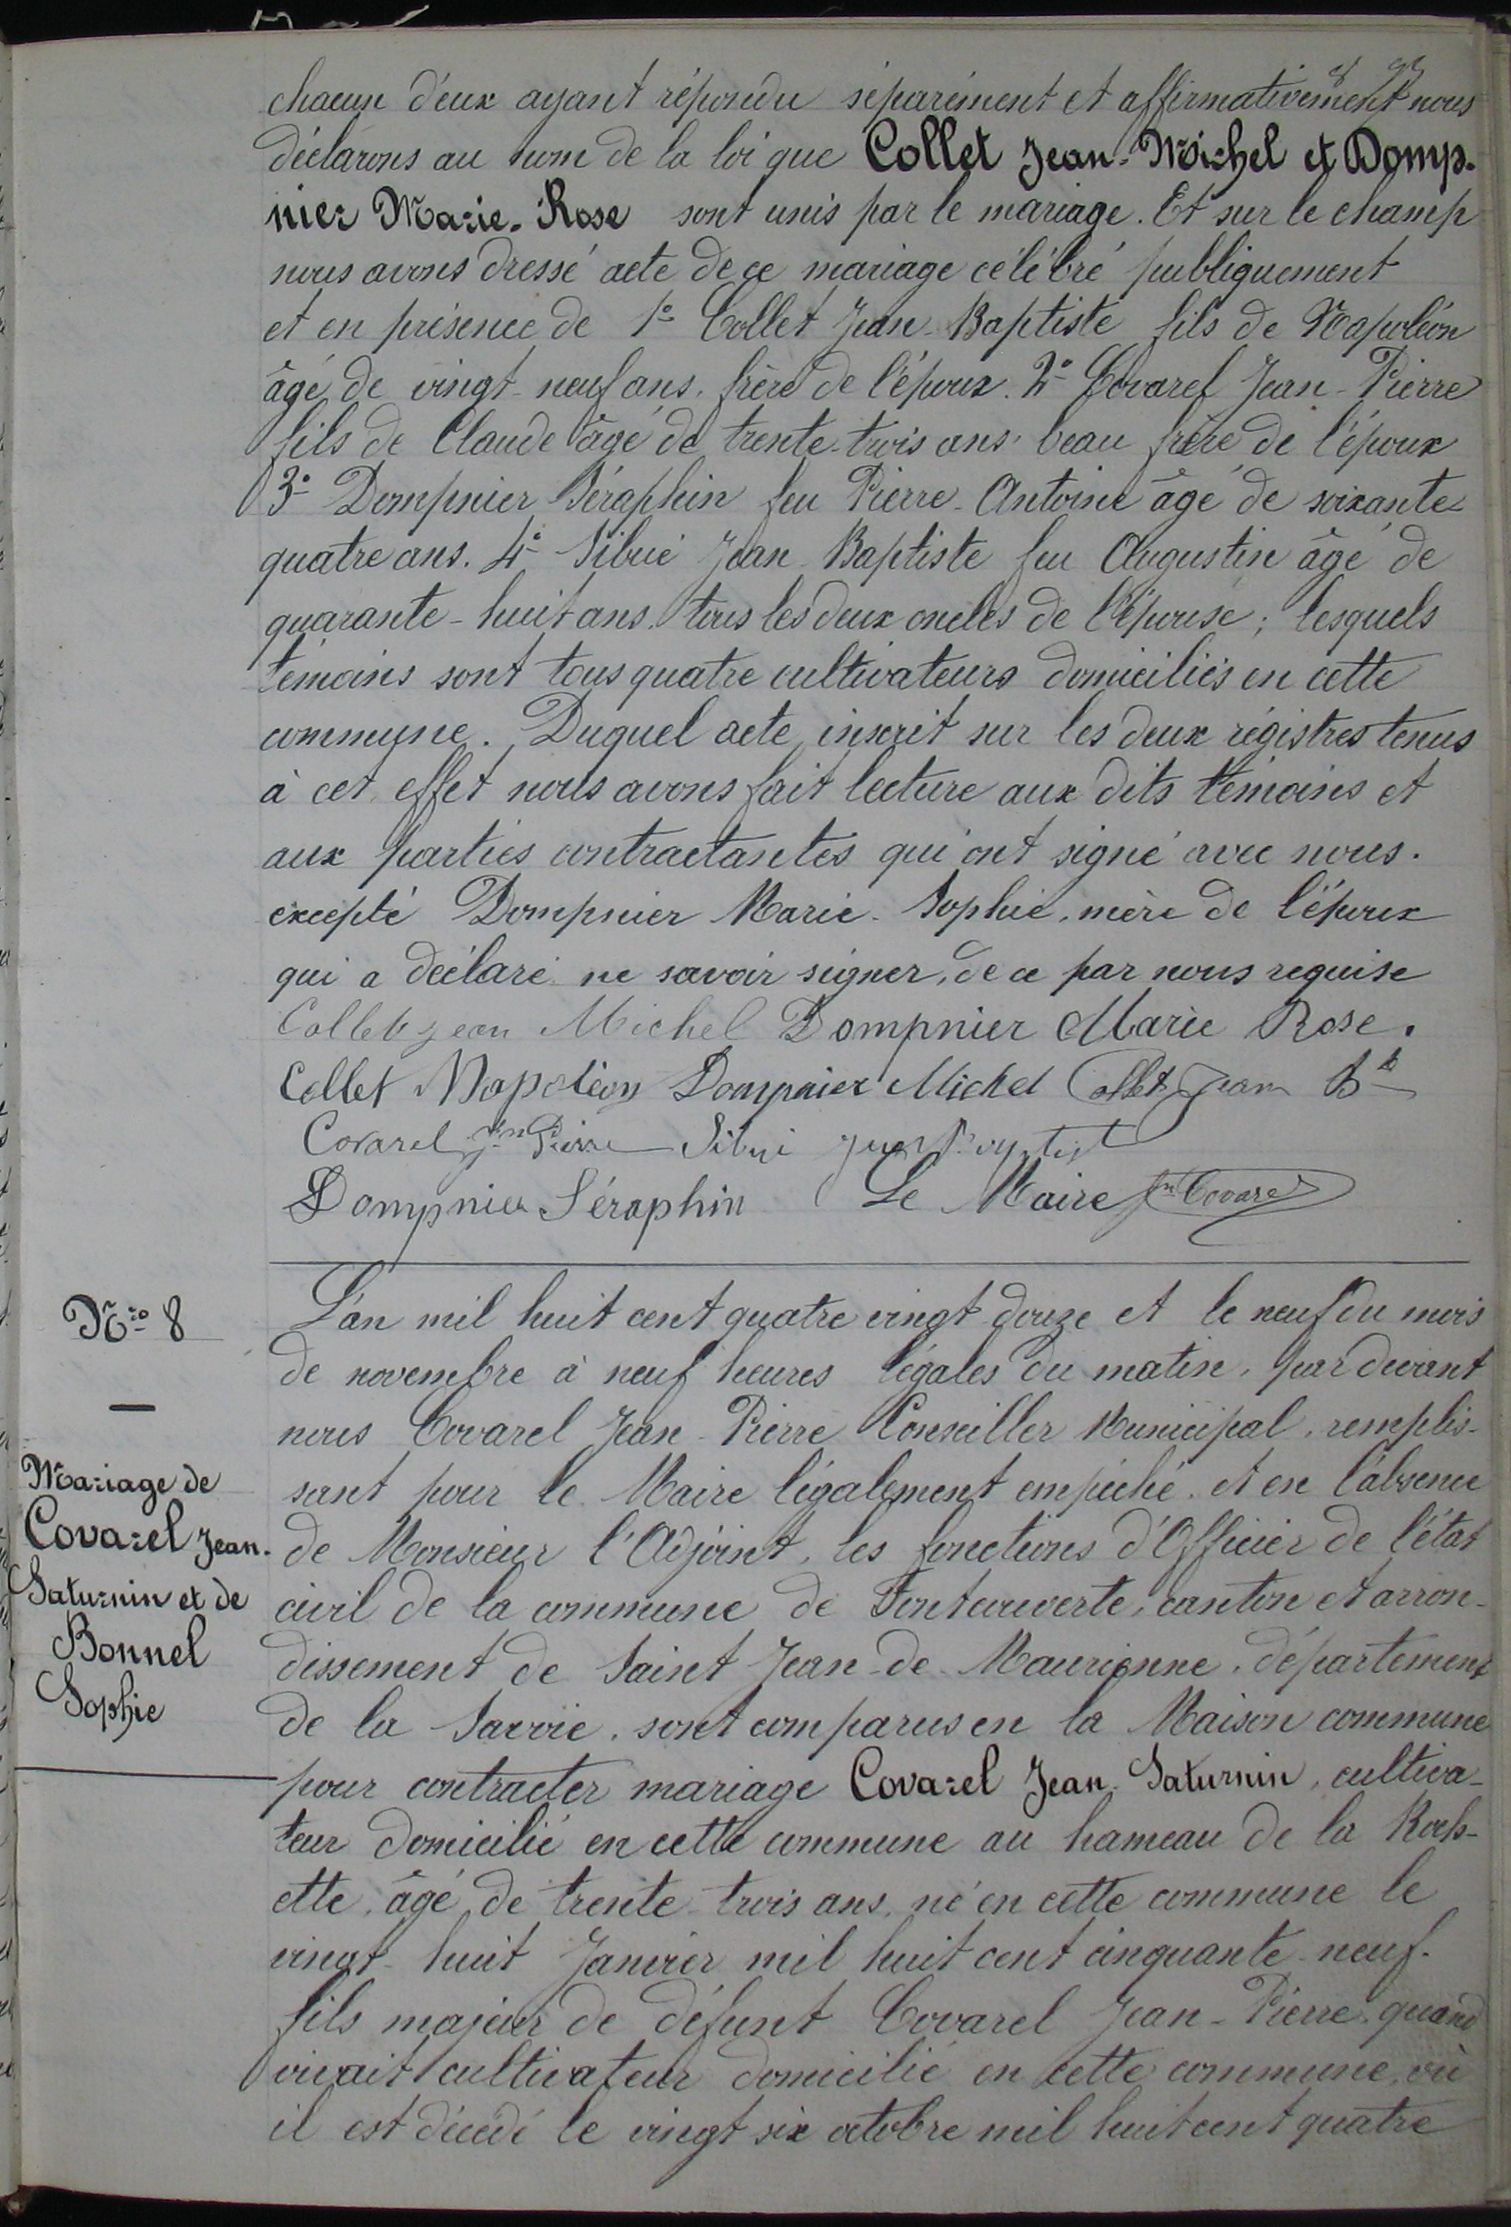 chacun d'eux ayant répondu séparément et affirmativement nous
déclarons au nom de la loi que Collet Jean-Michel et Domp-
nier Marie-Rose sont unis par le mariage. Et sur le champ
nous avons dressé acte de ce mariage célébré publiquement
et en présence de 1° Collet Jean-Baptiste fils de Napoléon
âgé de vingt-neuf ans, frère de l'époux. 2° Covarel Jean-Pierre
fils de Claude âgé de trente-trois ans, beau frère de l'époux
3° Dompnier Séraphin feu Pierre-Antoine âgé de soixante-
quatre ans. 4° Sibué Jean-Baptiste feu Augustin âgé de
quarante-huit ans, tous les deux oncles de l'épouse; lesquels
témoins sont tous quatre cultivateurs domiciliés en cette
commune. Duquel acte, inscrit sur les deux régistres tenus
à cet effet nous avons fait lecture aux dits témoins et
aux parties contractantes qui ont signé avec nous.
excepté Dompnier Marie-Sophie, mère de l'époux
qui a déclaré ne savoir signer, de ce par nous requise
Collet Jean Michel Dompnier Marie Rose.
Collet Napoléon Dompnier Michel Collet Jean Bte
Covarel Jn Pierre Sibué Jean Baptist
Dompnier Séraphin Le Maire Jn Covarel
Nro 8
Mariage de
Covarel Jean-
Saturnin et de
Bonnel
Sophie
L'an mil huit cent quatre vingt douze et le neuf du mois
de novembre à neuf heures légales du matin, par devant
nous Covarel Jean-Pierre Conseiller Municipal, remplis-
sant pour le Maire légalement empêché et en l'absence
de Monsieur l'Adjoint, les fonctions d'Officier de l'état
civil de la commune de Fontcouverte, canton et arron-
dissement de Saint Jean-de-Maurienne, département
de la Savoie, sont comparus en la Maison commune
pour contracter mariage Covarel Jean-Saturnin, cultiva-
teur domicilié en cette commune au hameau de la Roch-
ette, âgé de trente-trois ans, né en cette commune le
vingt-huit Janvier mil huit cent cinquante-neuf.
fils majeur de défunt Covarel Jean-Pierre, quand
vivait cultivateur domicilié en cette commune, où
il est décédé le vingt six octobre mil huit cent quatre